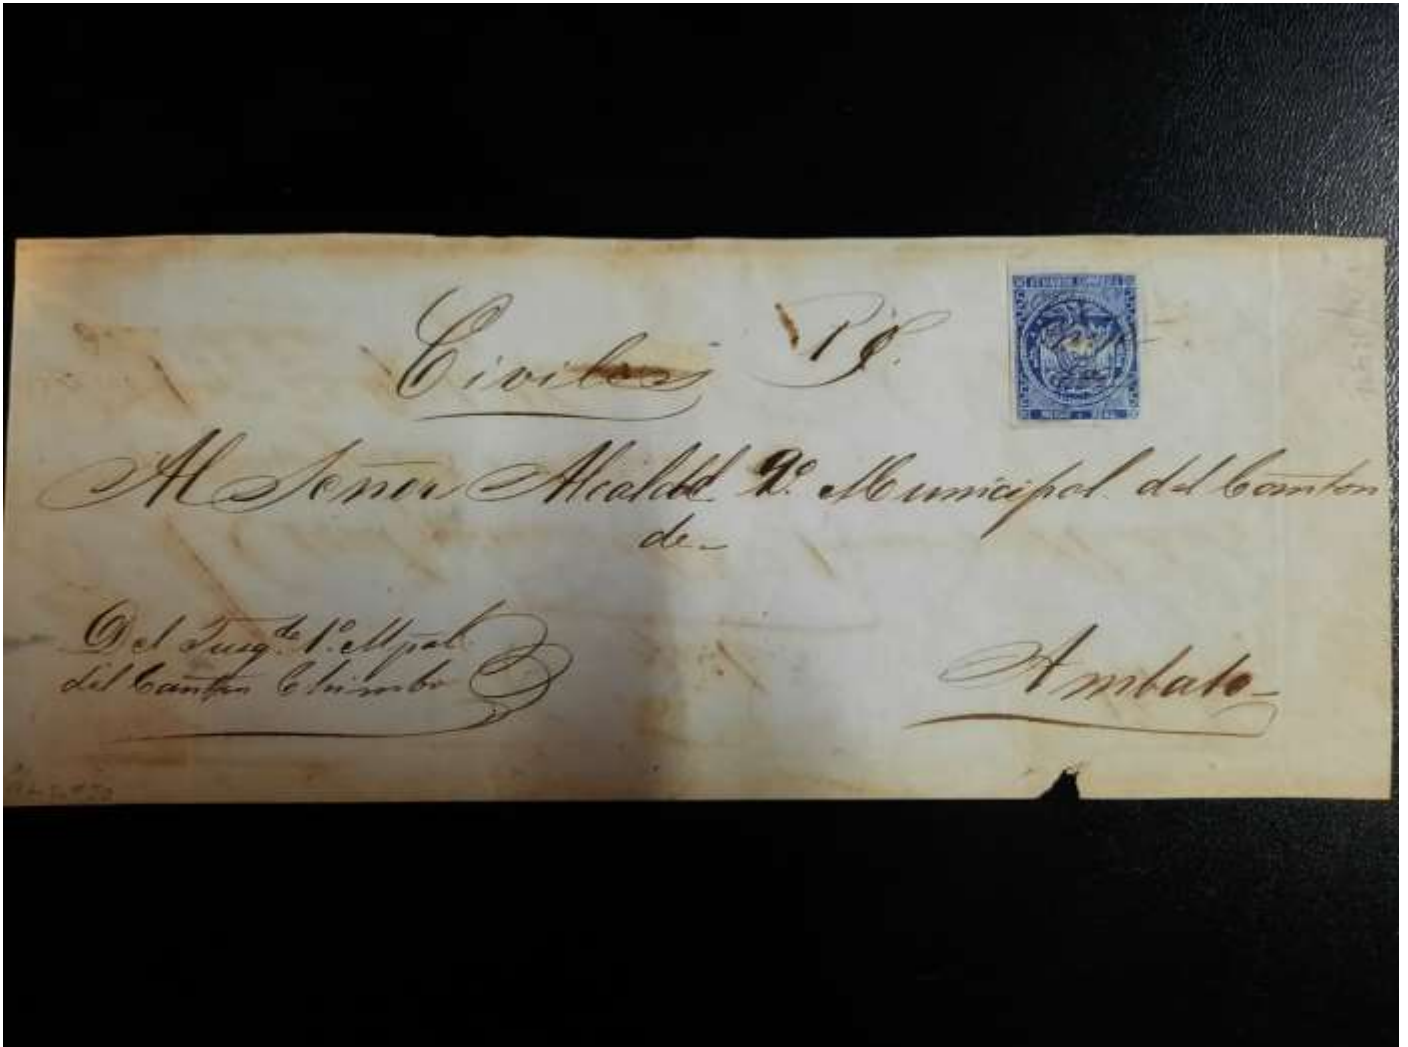 Civiles
Al Señor Alcalde 2º Municipal del Canton
de
Del Juzg.do 1º Mpal
del Canton Chimbo
Ambato